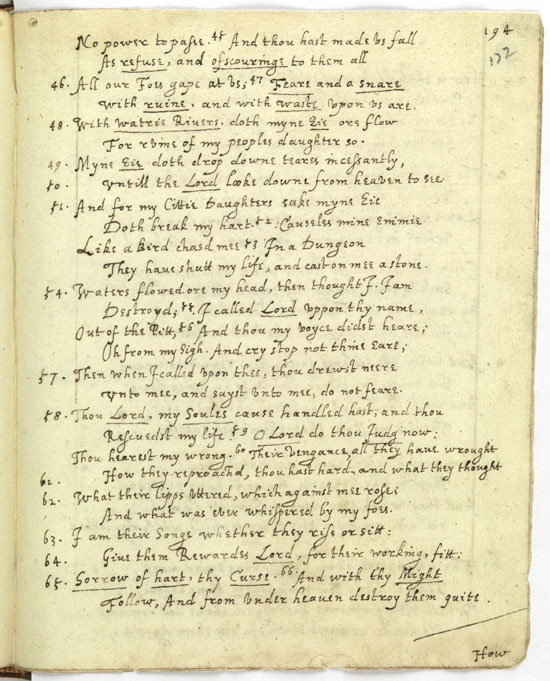 194
132
No power to passe. 45 And thou hast made vs fall
As refuse, and ofscouringe to them all
46. All our Foes gape at vs; 47 Feare and a snare
With ruine, and with waste vpon vs are.
48. With watrie Rivers doth myne Eie ore flow
For ruine of my peoples daughter so.
49. Myne Eie doth drop downe teares incessantly,
50. vntill the Lord looke downe from heaven to see.
51. And for my Cittie Daughters sake myne Eie
Doth break my hart. 52. Causeles mine enimie
Like a Bird chasd mee 53 In a Dungeon
They haue shutt my life, and cast on mee a stone.
54. Waters flowed ore my head, then thought I. I am
Destroyd; 55. I called Lord vppon thy name,
Out of the Pitt; 56 And thou my voyce didst heare;
Oh from my sigh. And cry stop not thine Eare;
57. Then when I called vpon thee, thou drewst neere
vnto mee, and sayst vnto mee, do not feare.
58. Thou Lord, my Soules cause handled hast, and thou
Rescuedst my life 59 O Lord do thou Judg now:
Thou hearest my wrong. 60 Their vengance, all they have wrought
61. How they reproachd, thou hast hard, and what they thought
62. What their lipps vttered, which against mee rose;
And what was ever whispered by my foes.
63. I am their Songe whether they rise or sitt:
64. Give them Rewardes Lord, for their working, fitt:
65. Sorrow of hart, thy Curse. 66. And with thy Might
Follow, And from vnder heaven destroy them quite.
How